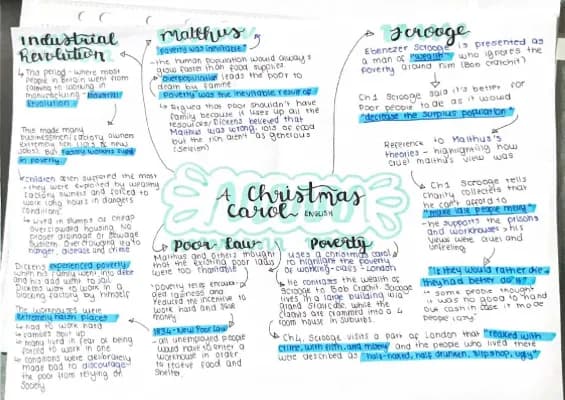 Industrial
Revolution
↳ The period where most
people in Britain went from
farming to working in
manufacturing "Industrial
Revolution"
This made many
businessmen (factory owners
extremely rich (lots & new
jobs). But factory workers
in poverty.
↳ Children often suffered the most
- they were exploited by wealthy
factory owners and forced to
work long hours in dangerous
conditions.
↳ Lived in slums or cheap
overcrowded housing. No
proper drainage or sewage
system. Overcrowding led to
hunger, disease and crime
Dickens experienced poverty
when his family went into debt
and his dad went to jail.
Dickens went to work in a
blacking factory by himself
The workhouses were
extremely harsh places
↳ had to work hard
↳ families split up
↳ many lived in fear of being
forced to work in one
↳ conditions were deliberately
made bad to discourage
the poor from relying on
society
Malthus
"Poverty was inevitable"
- the human population would always
grow faster than food supplies.
↳ overpopulation leads the poor to
death by famine
Poverty was the inevitable result of
↳ Argued that poor shouldn't have
family because it uses up all the
resources. Dickens believed that
Malthus was wrong, lots of food
but the rich aren't as generous
(selfish)
Scrooge
Ebenezer Scrooge is presented as
a man of "wealth" who ignores the
poverty around him (Bob Cratchit)
Ch1 Scrooge said it's better for
poor people to die as it would
"decrease the surplus population"
Reference to Malthus's
theories - highlighting how
cruel Malthus's view was
↳ Ch1 Scrooge tells
charity collectors that
he can't afford to
"make idle people merry"
- he supports the prisons
and workhouses & his
views were cruel and
unfeeling
"If they would rather die
they had better do it"
- some people thought
it was no good to hand
out cash in case it made
people lazy
A Christmas
Carol ENGLISH
Poor Law
Malthus and others thought
that the existing poor laws
were too charitable
- poverty relief encoura-
ged laziness and
reduced the incentive to
work hard and save
money
1834 - New Poor Law
- an unemployed people
would have to enter a
workhouse in order
to receive food and
shelter.
Poverty
uses A Christmas Carol
to highlight the poverty
of working-class - London
↳ He contrasts the wealth of
Scrooge to Bob Cratchit. Scrooge
lives in a large building with
grand staircase while the
Cratchits are crammed into a 4
room house in suburbs.
↳ Ch4, Scrooge visits a part of London that "reeked with
crime, with filth, and misery" and the people who lived there
were described as "half-naked, half drunken, slipshod, ugly"